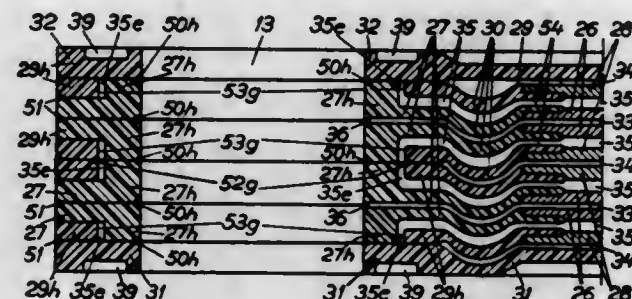 32 39 35e 50h 13 35e 32 39 27 35 30 29 54 26 28
29h 27h 50h 34
51 53g 27h 35
50h 33
29h 27h 36 35
53g 50h
50h 27h
35e 52g 35e 35
27 27h 36 33
51 50h 35
27 53g
51 27h 27h 34
50h
29h 35e 39 31 31 35e 39 29h 31 26 28